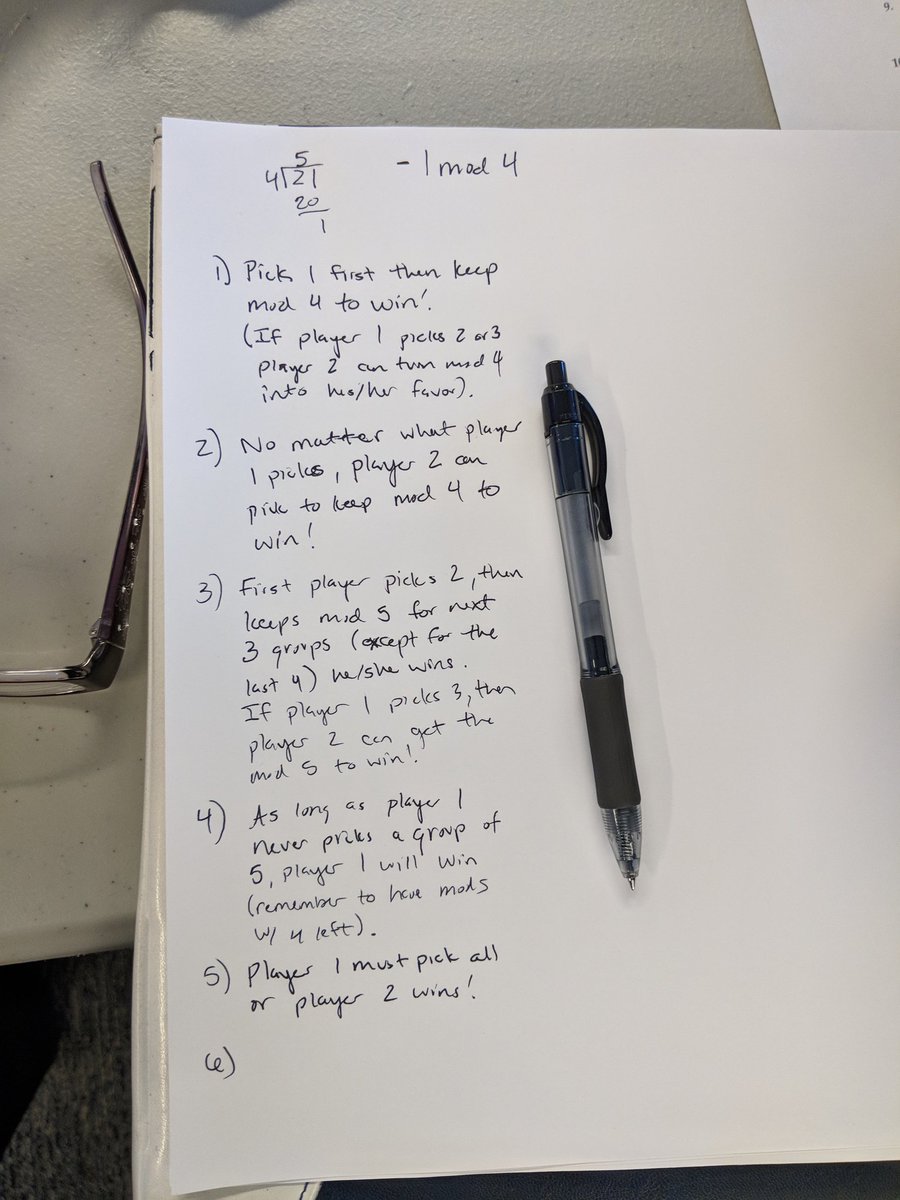 9.
5
4)21
20
1
- 1 mod 4
1) Pick 1 first then keep
mod 4 to win!
(If player 1 picks 2 or 3
player 2 can turn mod 4
into his/her favor).
2) No matter what player
1 picks, player 2 can
pick to keep mod 4 to
win!
3) First player picks 2, then
keeps mod 5 for next
3 groups (except for the
last 4) he/she wins.
If player 1 picks 3, then
player 2 can get the
mod 5 to win!
4) As long as player 1
never picks a group of
5, player 1 will win
(remember to have mod 5
w/ 4 left).
5) Player 1 must pick all
or player 2 wins!
6)